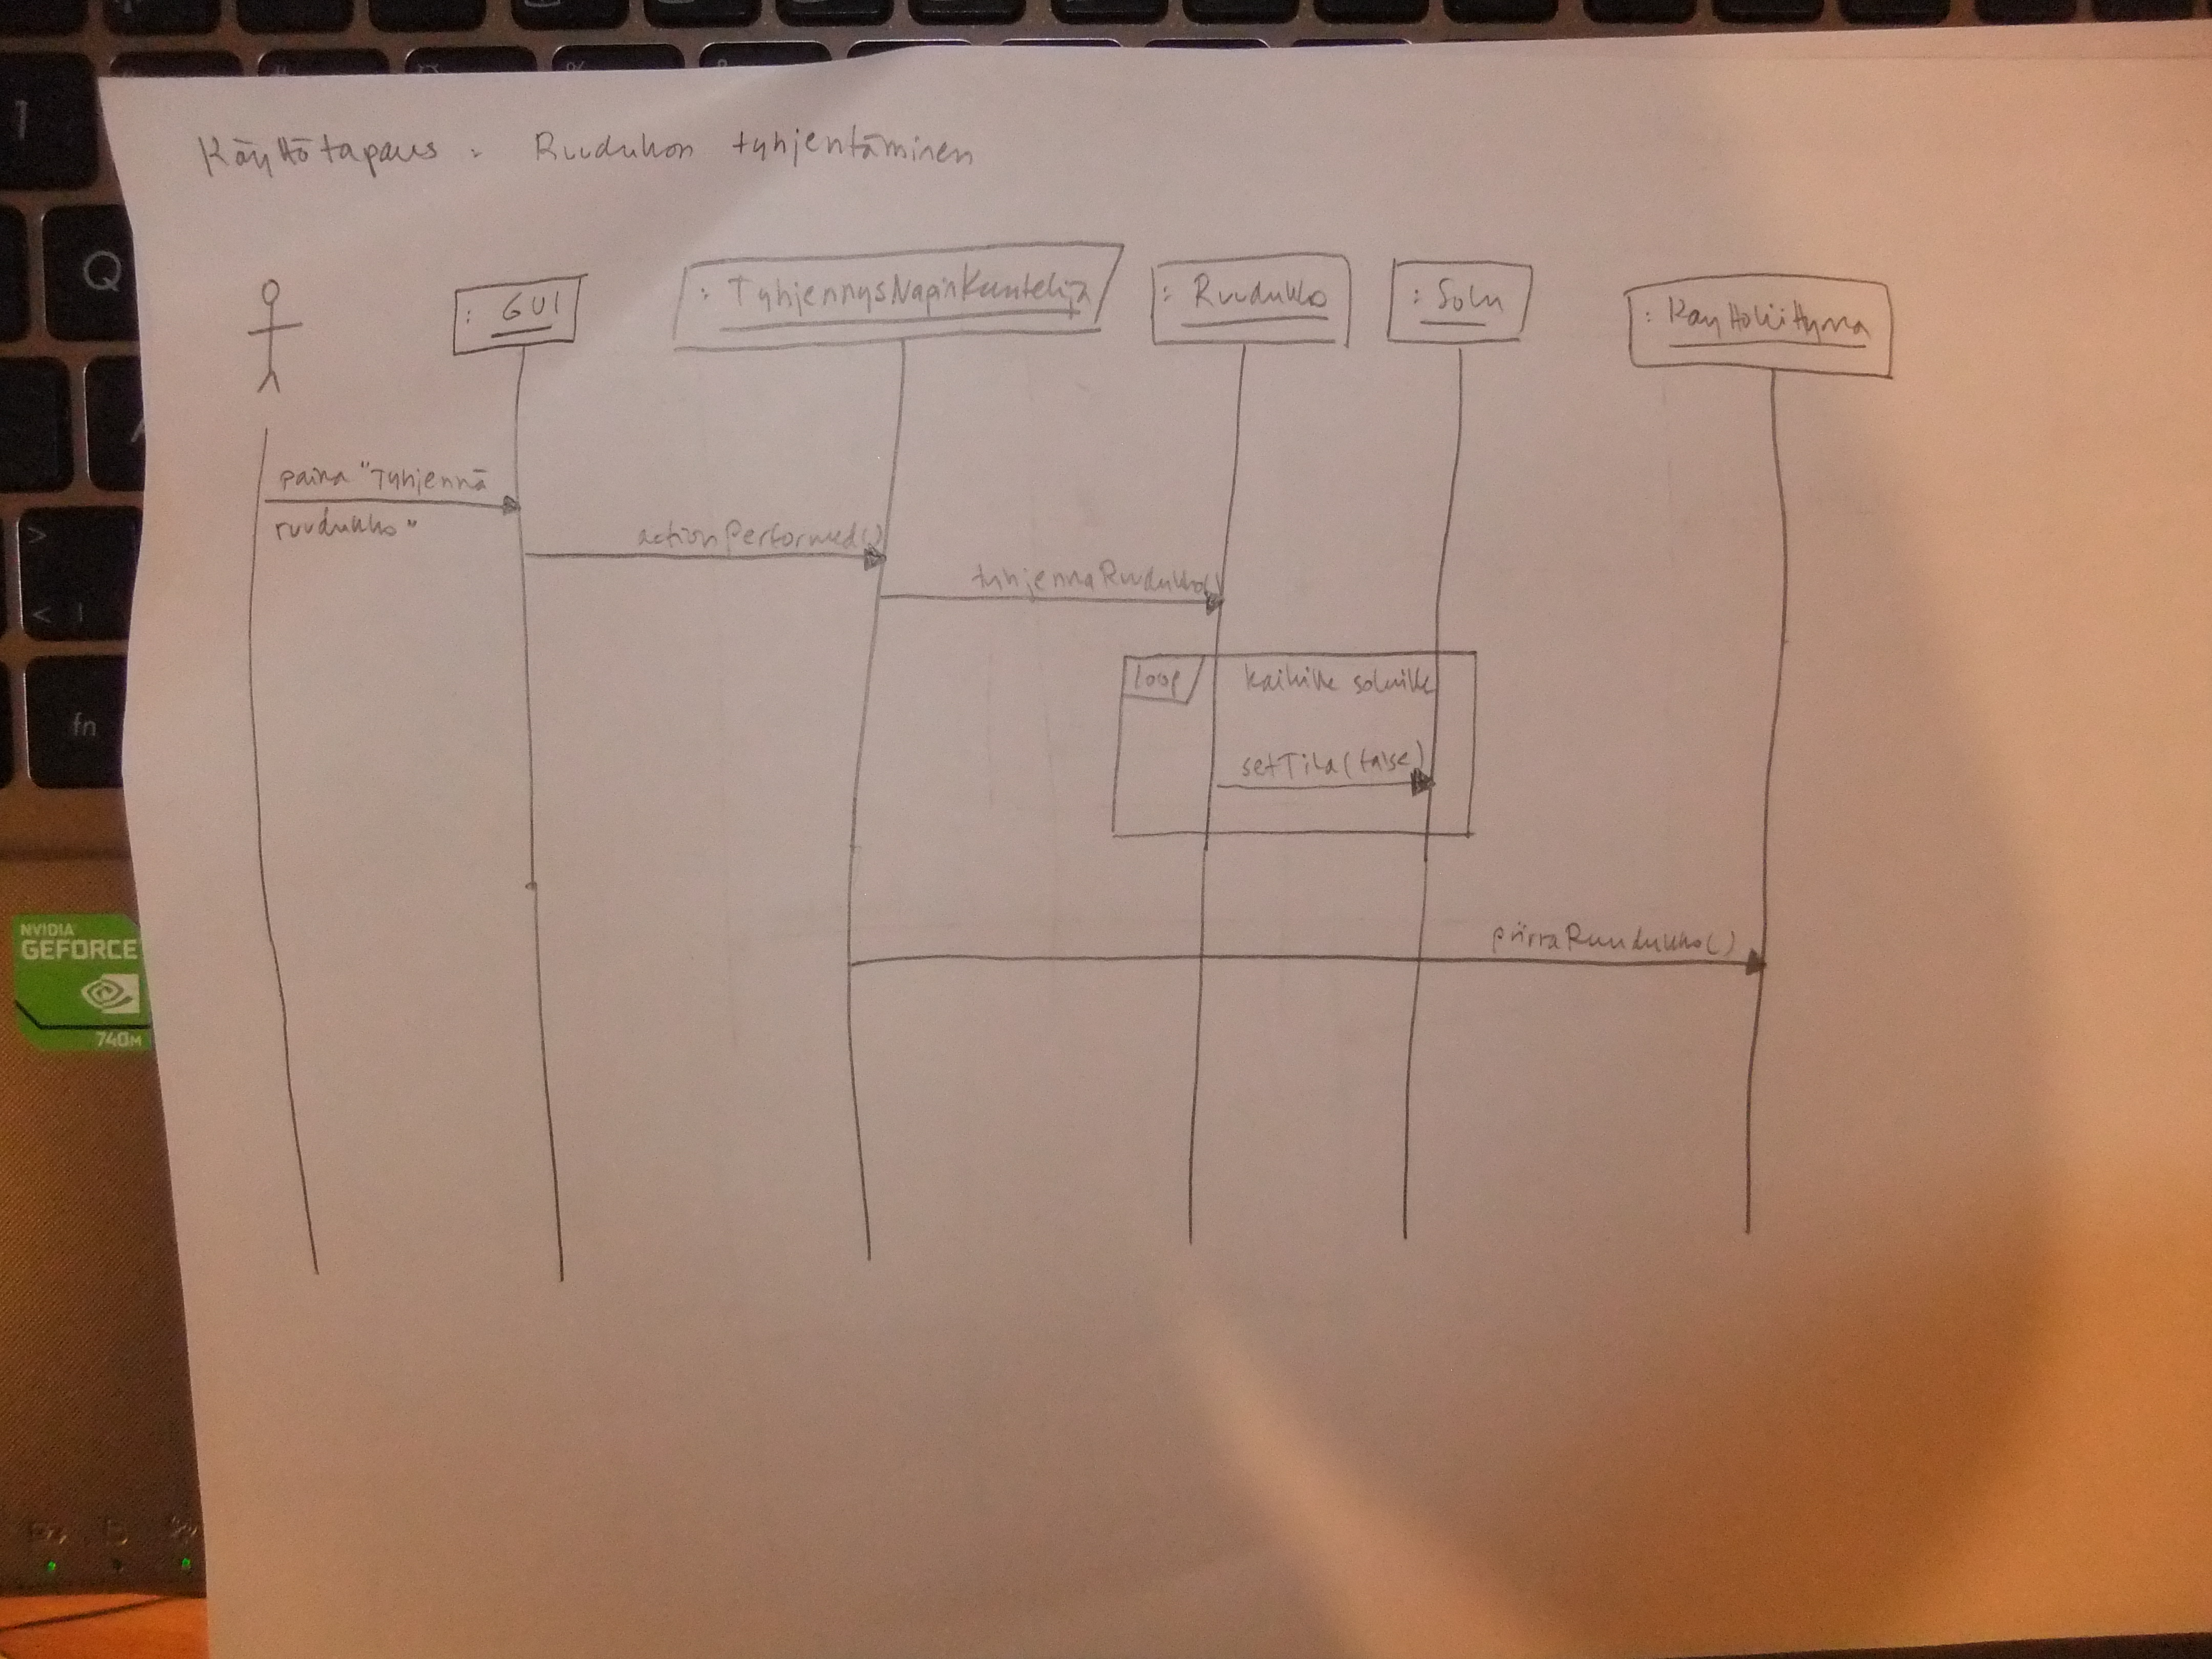 Käyttötapaus : Ruudukon tyhjentäminen
: GUI
: TyhjennysNapinKuuntelija
: Ruudukko
: Solu
: Kayttoliittyma
paina "Tyhjennä
ruudukko"
actionPerformed()
tyhjennaRuudukko()
loop
kaikille soluille
setTila(false)
piirraRuudukko()
1
Q
>
< |
fn
NVIDIA
GEFORCE
740M